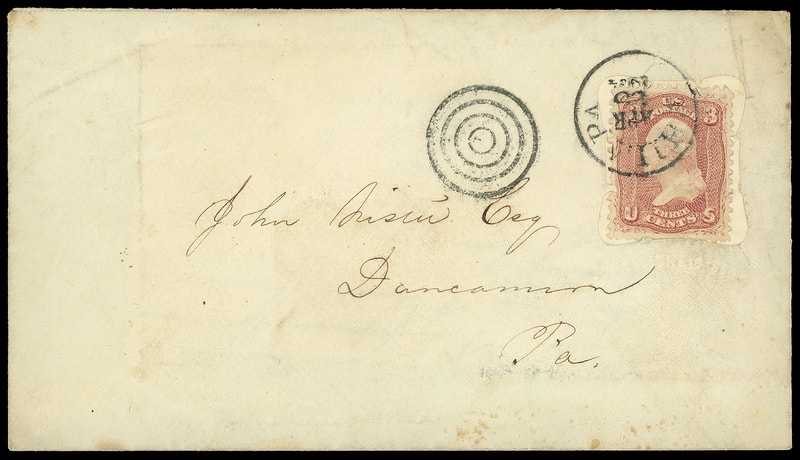 PA
APR
23
3
U S
THREE
CENTS
John Nistu Esq
Duncannon
Pa.